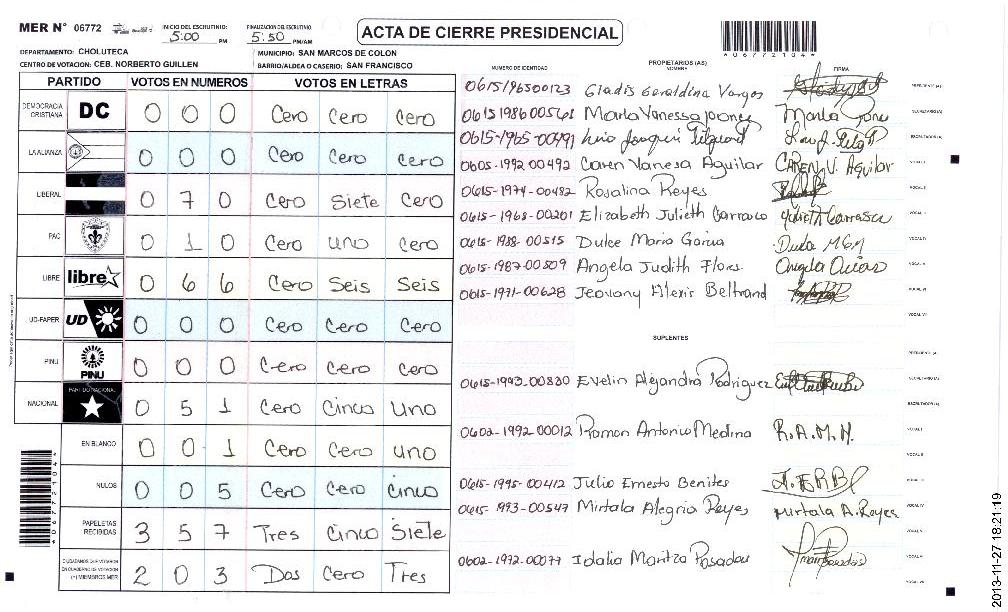 MER N° 06772
INICIO DEL ESCRUTINIO
5:00 PM
FINALIZACION DEL ESCRUTINIO
5:50 PM/AM
ACTA DE CIERRE PRESIDENCIAL
*06772104*
DEPARTAMENTO: CHOLUTECA
MUNICIPIO: SAN MARCOS DE COLON
CENTRO DE VOTACION: CEB. NORBERTO GUILLEN
BARRIO/ALDEA O CASERIO: SAN FRANCISCO
PARTIDO VOTOS EN NUMEROS VOTOS EN LETRAS
DEMOCRACIA CRISTIANA DC 0 0 0 Cero Cero Cero
LA ALIANZA 0 0 0 Cero Cero Cero
LIBERAL 0 7 0 Cero Siete Cero
PAC 0 1 0 Cero uno Cero
LIBRE libre 0 6 6 Cero Seis Seis
UD-FAPER UD 0 0 0 Cero Cero Cero
PINU PINU 0 0 0 Cero Cero Cero
NACIONAL PARTIDO NACIONAL 0 5 1 Cero Cinco Uno
EN BLANCO 0 0 1 Cero Cero uno
NULOS 0 0 5 Cero Cero Cinco
PAPELETAS RECIBIDAS 3 5 7 Tres Cinco Siete
CIUDADANOS QUE VOTARON EN CUADERNO DE VOTACION (+) MIEMBROS MER 2 0 3 Dos Cero Tres
NUMERO DE IDENTIDAD PROPIETARIOS (AS) NOMBRE FIRMA
0615196500123 Gladis Geraldina Vargas PRESIDENTE (A)
Marla Vanessa SECRETARIO (A)
0615-1965-00491 Luis Joaquin ESCRUTADOR (A)
0605-1992-00492 Caren Vanesa Aguilar CAREN V. Aguilar VOCAL I
0615-1974-00482 Rosalina Reyes VOCAL II
0615-1968-00201 Elizabeth Julieth Carrasco Julieth Carrasco
0615-1988-00515 Dulce Maria Garcia VOCAL IV
0615-1987-00509 Angela Judith Flores
0615-1971-00628 Jeovany Alexis Beltrand VOCAL VI
VOCAL VII
SUPLENTES
PRESIDENTE (A)
0615-1993-00830 Evelin Alejandra Rodriguez SECRETARIO (A)
ESCRUTADOR (A)
0602-1992-00012 Ramon Antonio Medina R.A.M.M. VOCAL I
VOCAL II
0615-1995-00412 Julio Ernesto Benites VOCAL III
Mirtala Alegria Reyes Mirtala A. Reyes VOCAL IV
VOCAL V
0602-1972-00077 Idalia Maritza Posadas VOCAL VI
VOCAL VII
*06772104*
2013-11-27 18:21:19